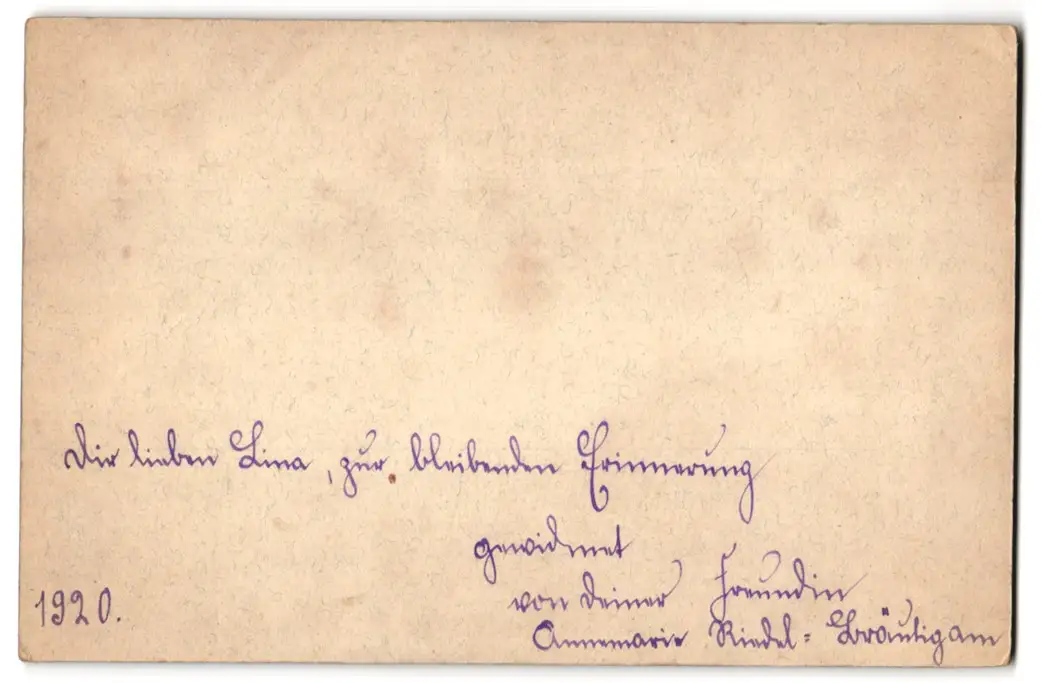 Dir lieben Lina, zur bleibenden Erinnerung
gewidmet
von Deiner Freundin
1920.
Annemarie Riedel= Bräutigam